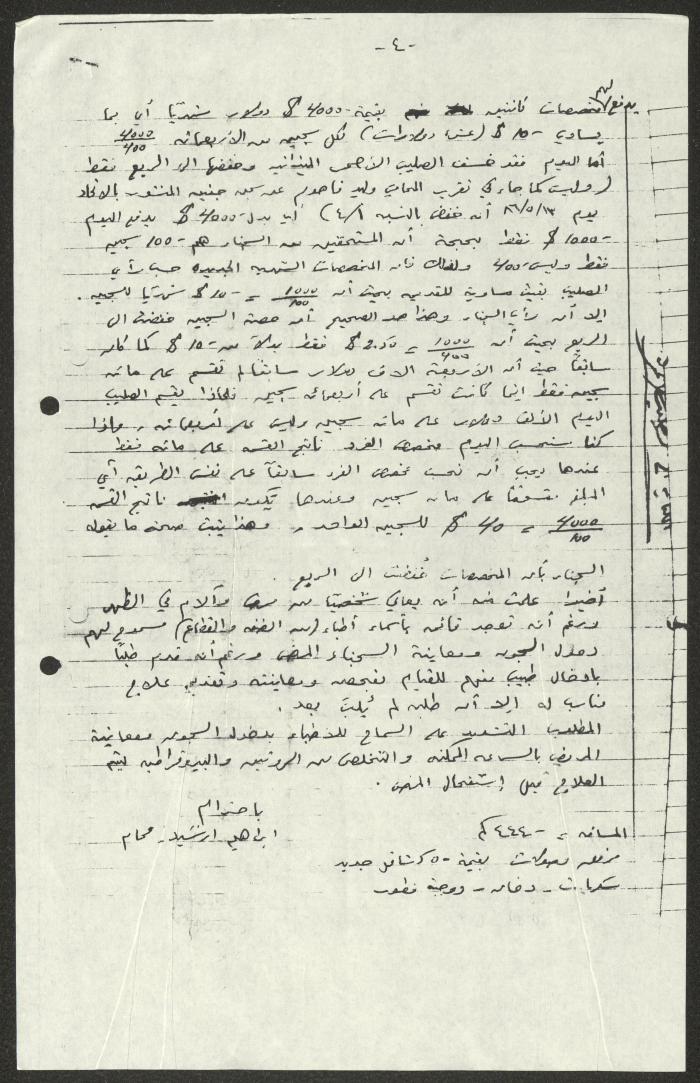 - ٤ -
يدفع لهم مخصصات كانتين بقيمة -4000 $ دولار شهريًا أي بما
يساوي -10 $ (عشر دولارات) لكل سجين من الأربعمائة 4000/400
أما اليوم فقد خسف الصليب الأحمر الميزانية وخفضها الى الربع فقط
(وليس كما جاء في تقرب المحامي وليد فاهوم عن سجن جنيد المنشور بالاتحاد
يوم ٨٦/٥/١٣ أنه خفض بالنسبه ٤/١) أي بدل -4000 $ يدفع اليوم
-1000 $ فقط بحجة أن المستحقين من السجناء هم -100 سجين
فقط وليس -400 ولذلك فان المخصصات الشهرية الجديده حسب رأي
الصليب بقيت مساوية للقديمه بحيث أن 1000/100 = -10 $ شهريًا للسجين .
الا أن رأي السجناء وهذا هو الصحيح أن حصة السجين خفضت الى
الربع بحيث أن 1000/400 = ٢٫٥ $ فقط بدلاً من -10 $ كما كان
سابقًا حيث أن الأربعة الاف دولار سابقًا لم تقسم على مائة
سجين فقط انما كانت تقسم على أربعمائة سجين فلماذا يقسم الصليب
اليوم الألف دولار على مائة سجين وليس على أربعمائة ، واذا
كنا سنحسب اليوم مخصص الفرد ناتج القسمه على مائه فقط
عندها يجب أن نحسب مخصص الفرد سابقًا على نفس الطريقه أي
المبلغ مقسومًا على مائة سجين وعندها يكون ناتج القسمه
4000/100 = 40 $ للسجين الواحد ، وهذا يثبت صحة ما يقوله
السجناء بأن المخصصات خُفضت الى الربع .
أخيرًا علمت منه أنه يعاني شخصيًا من وآلام في الظهر
ورغم أنه توجد قائمة بأسماء أطباء (من الضفه والقطاع) مسموح لهم
دخول السجون ومعاينة السجناء المرضى ورغم أنه قدم طلبًا
بادخال طبيب منهم للقيام بفحصه ومعاينته وتقديم علاج
مناسب له إلا أن طلبه لم يُلبَ بعد .
المطلوب التشديد على السماح للاطباء بدخول السجون ومعاينة
المريض بالسرعه الممكنه والتخلص من الروتين والبيروقراطيه ليتم
العلاج قبل إستفحال المرض .
باحترام
ابراهيم ارشيد - محام
المسافه = -٤٤٤ كم
مرفق وصولات بقيمة -٥٠ شاقل جديد
- دخان - ووجبة فطور